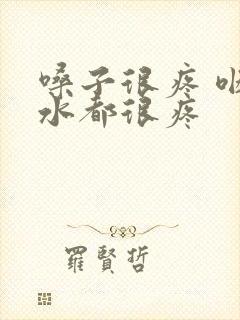 嗓子很疼
水都很疼
羅賢哲